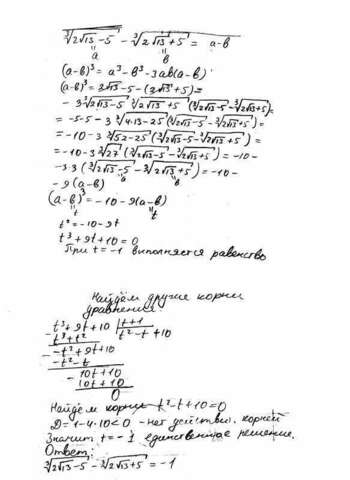 ∛(2√13-5) - ∛(2√13+5) = a-b
a b
(a-b)³ = a³-b³-3ab(a-b)
(a-b)³ = 2√13-5-(2√13+5)=
- 3∛(2√13-5) ∛(2√13+5) (∛(2√13-5)-∛(2√13+5))=
= -5-5-3∛(4·13-25)(∛(2√13-5)-∛(2√13+5))=
= -10-3∛(52-25)(∛(2√13-5)-∛(2√13+5))=
= -10-3∛27(∛(2√13-5)-∛(2√13+5))= -10-
-3·3(∛(2√13-5)-∛(2√13+5))= -10-
a b
-9(a-b)
(a-b)³ = -10-9(a-b)
t t
t²=-10-9t
t³+9t+10=0
При t=-1 выполняется равенство
Найдём другие корни
уравнения.
t³+9t+10 | t+1
t³+t² t²-t+10
-t²+9t+10
-t²-t
10t+10
10t+10
0
Найдём корни t²-t+10=0
D=1-4·10<0 -нет действ. корней
Значит t=-1 единственное решение.
Ответ:
∛(2√13-5) - ∛(2√13+5) = -1